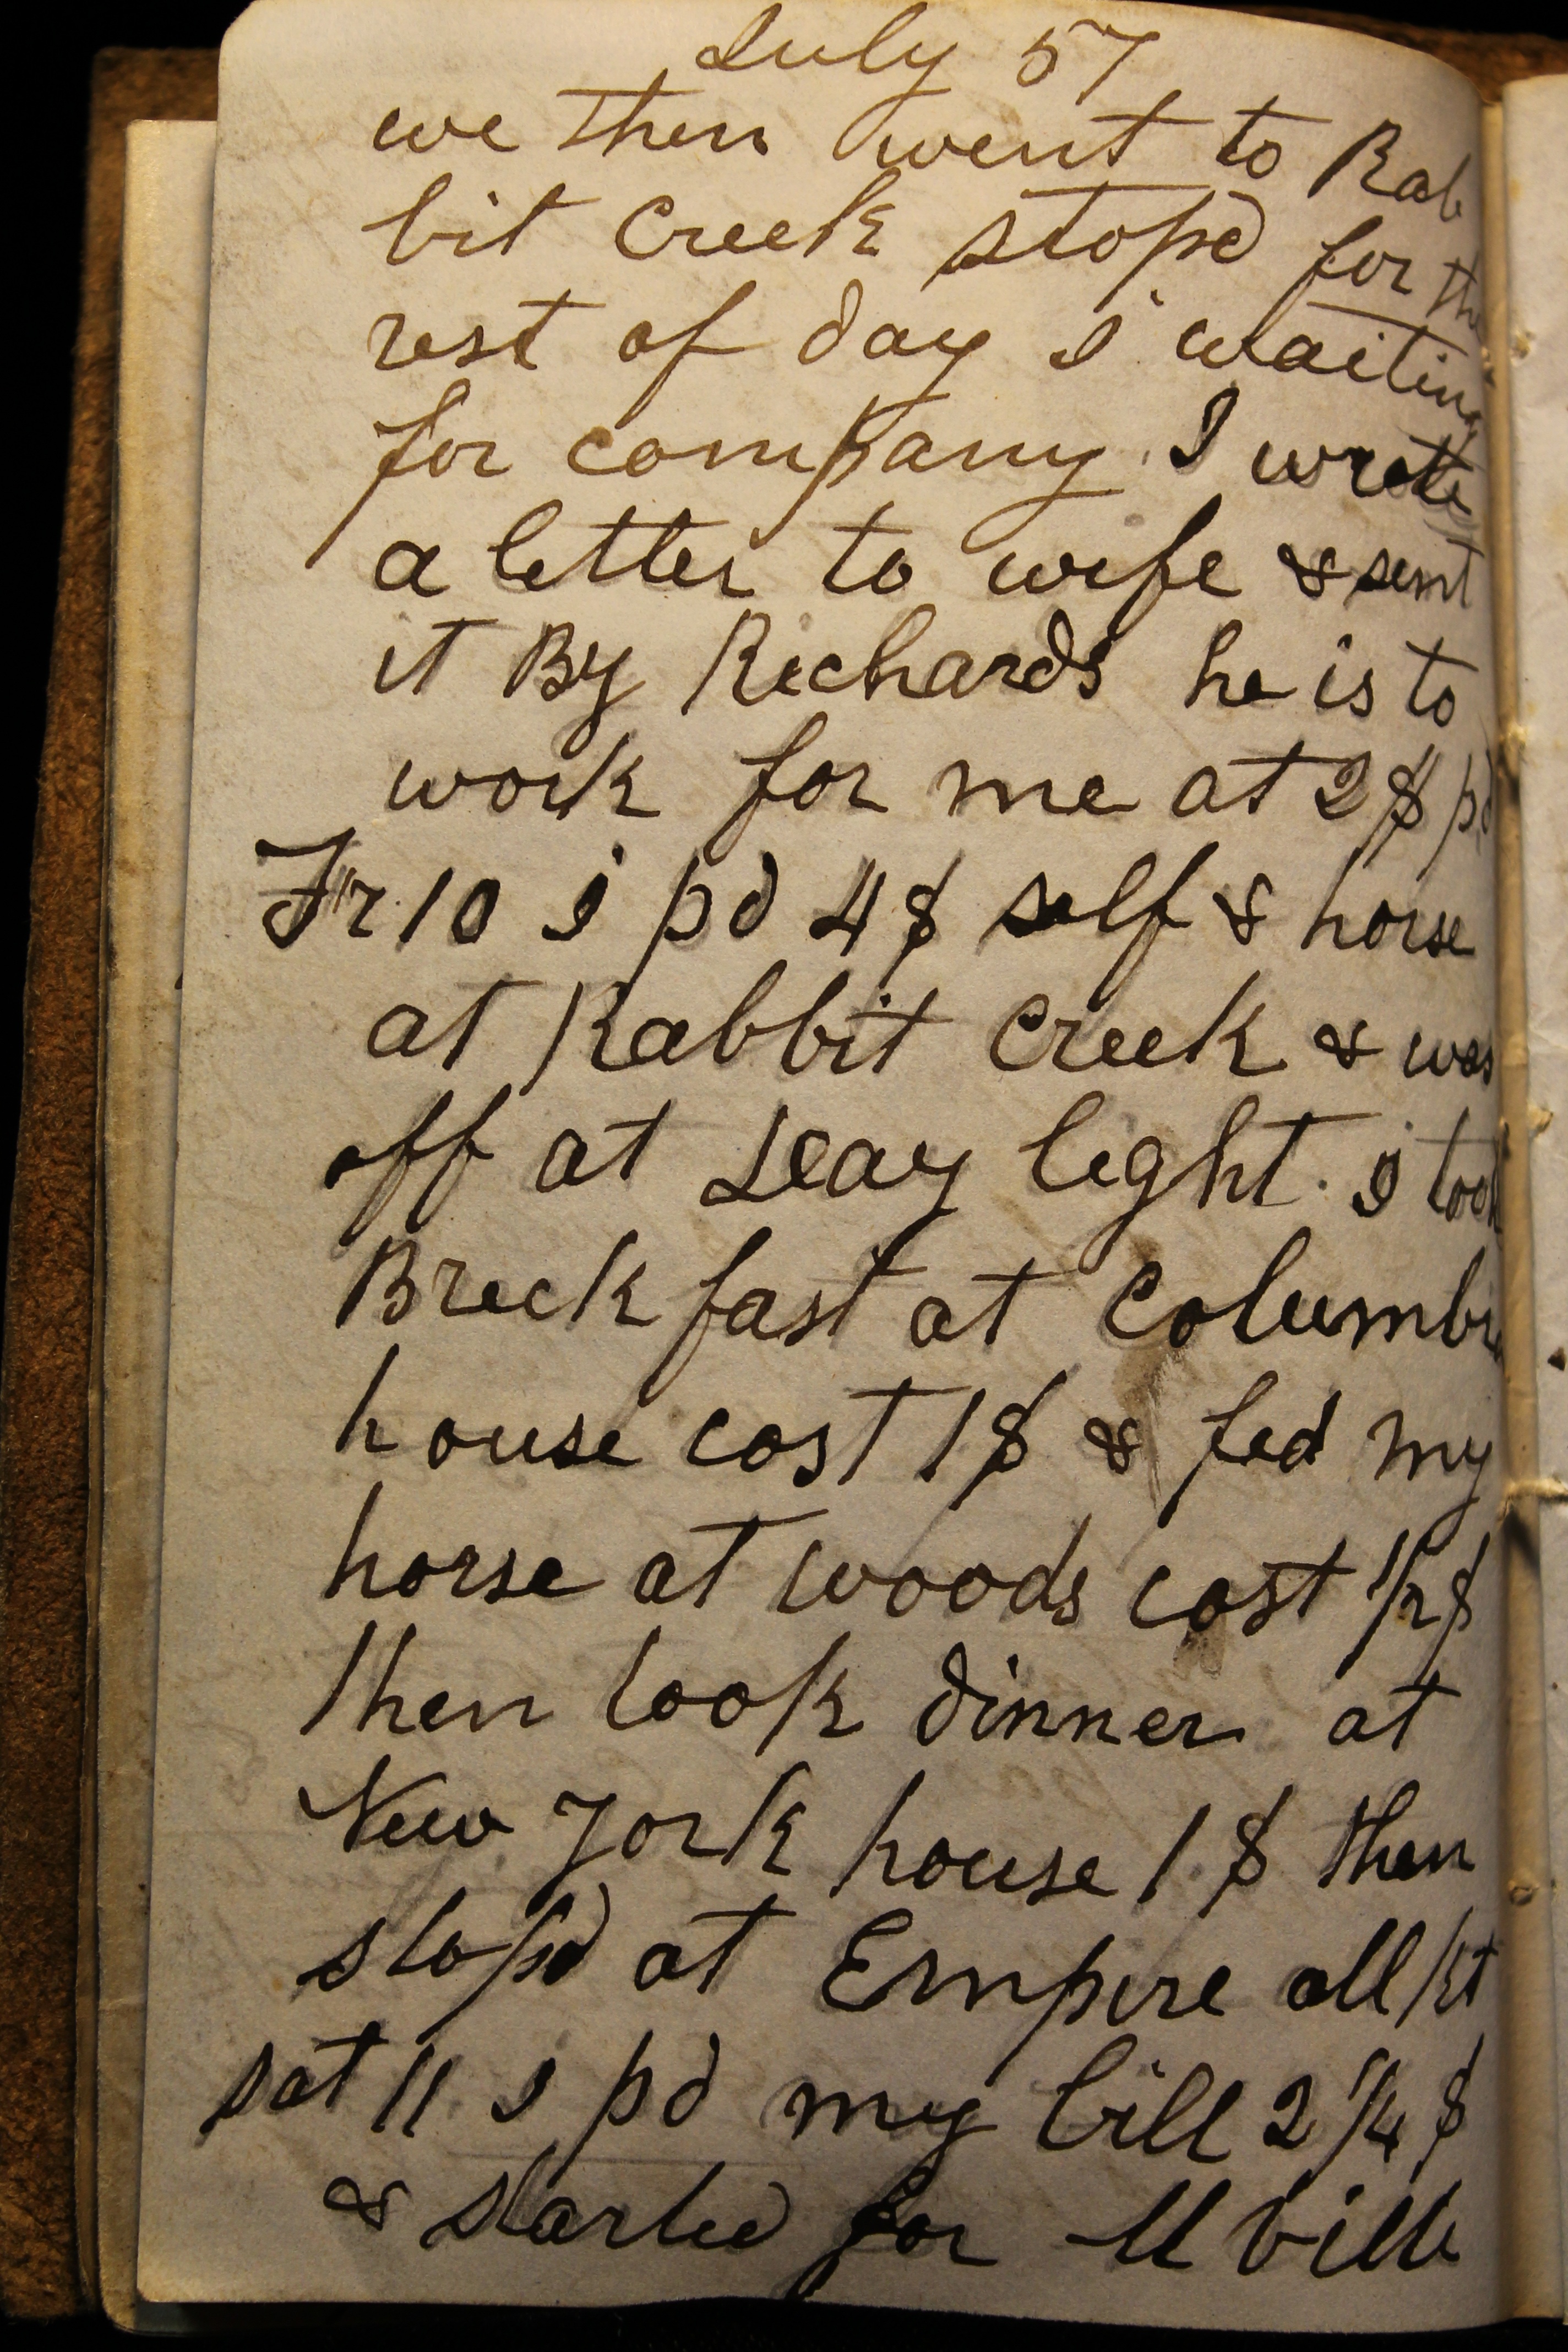 July 57
we then went to Rab
bit Creek stopd for the
rest of day I waiting
for company. I wrote
a letter to wife & sent
it By Richards he is to
work for me at 2$ pd
Fr 10 I pd 4$ self & horse
at Rabbit Creek & was
off at Day light. I took
Breckfast at Columbia
house cost 1$ & fed my
horse at woods cost 1/2$
then took dinner at
New York house 1$ then
stopd at Empire all
sat 11 I pd my bill 2 1/4 $
& started for M ville